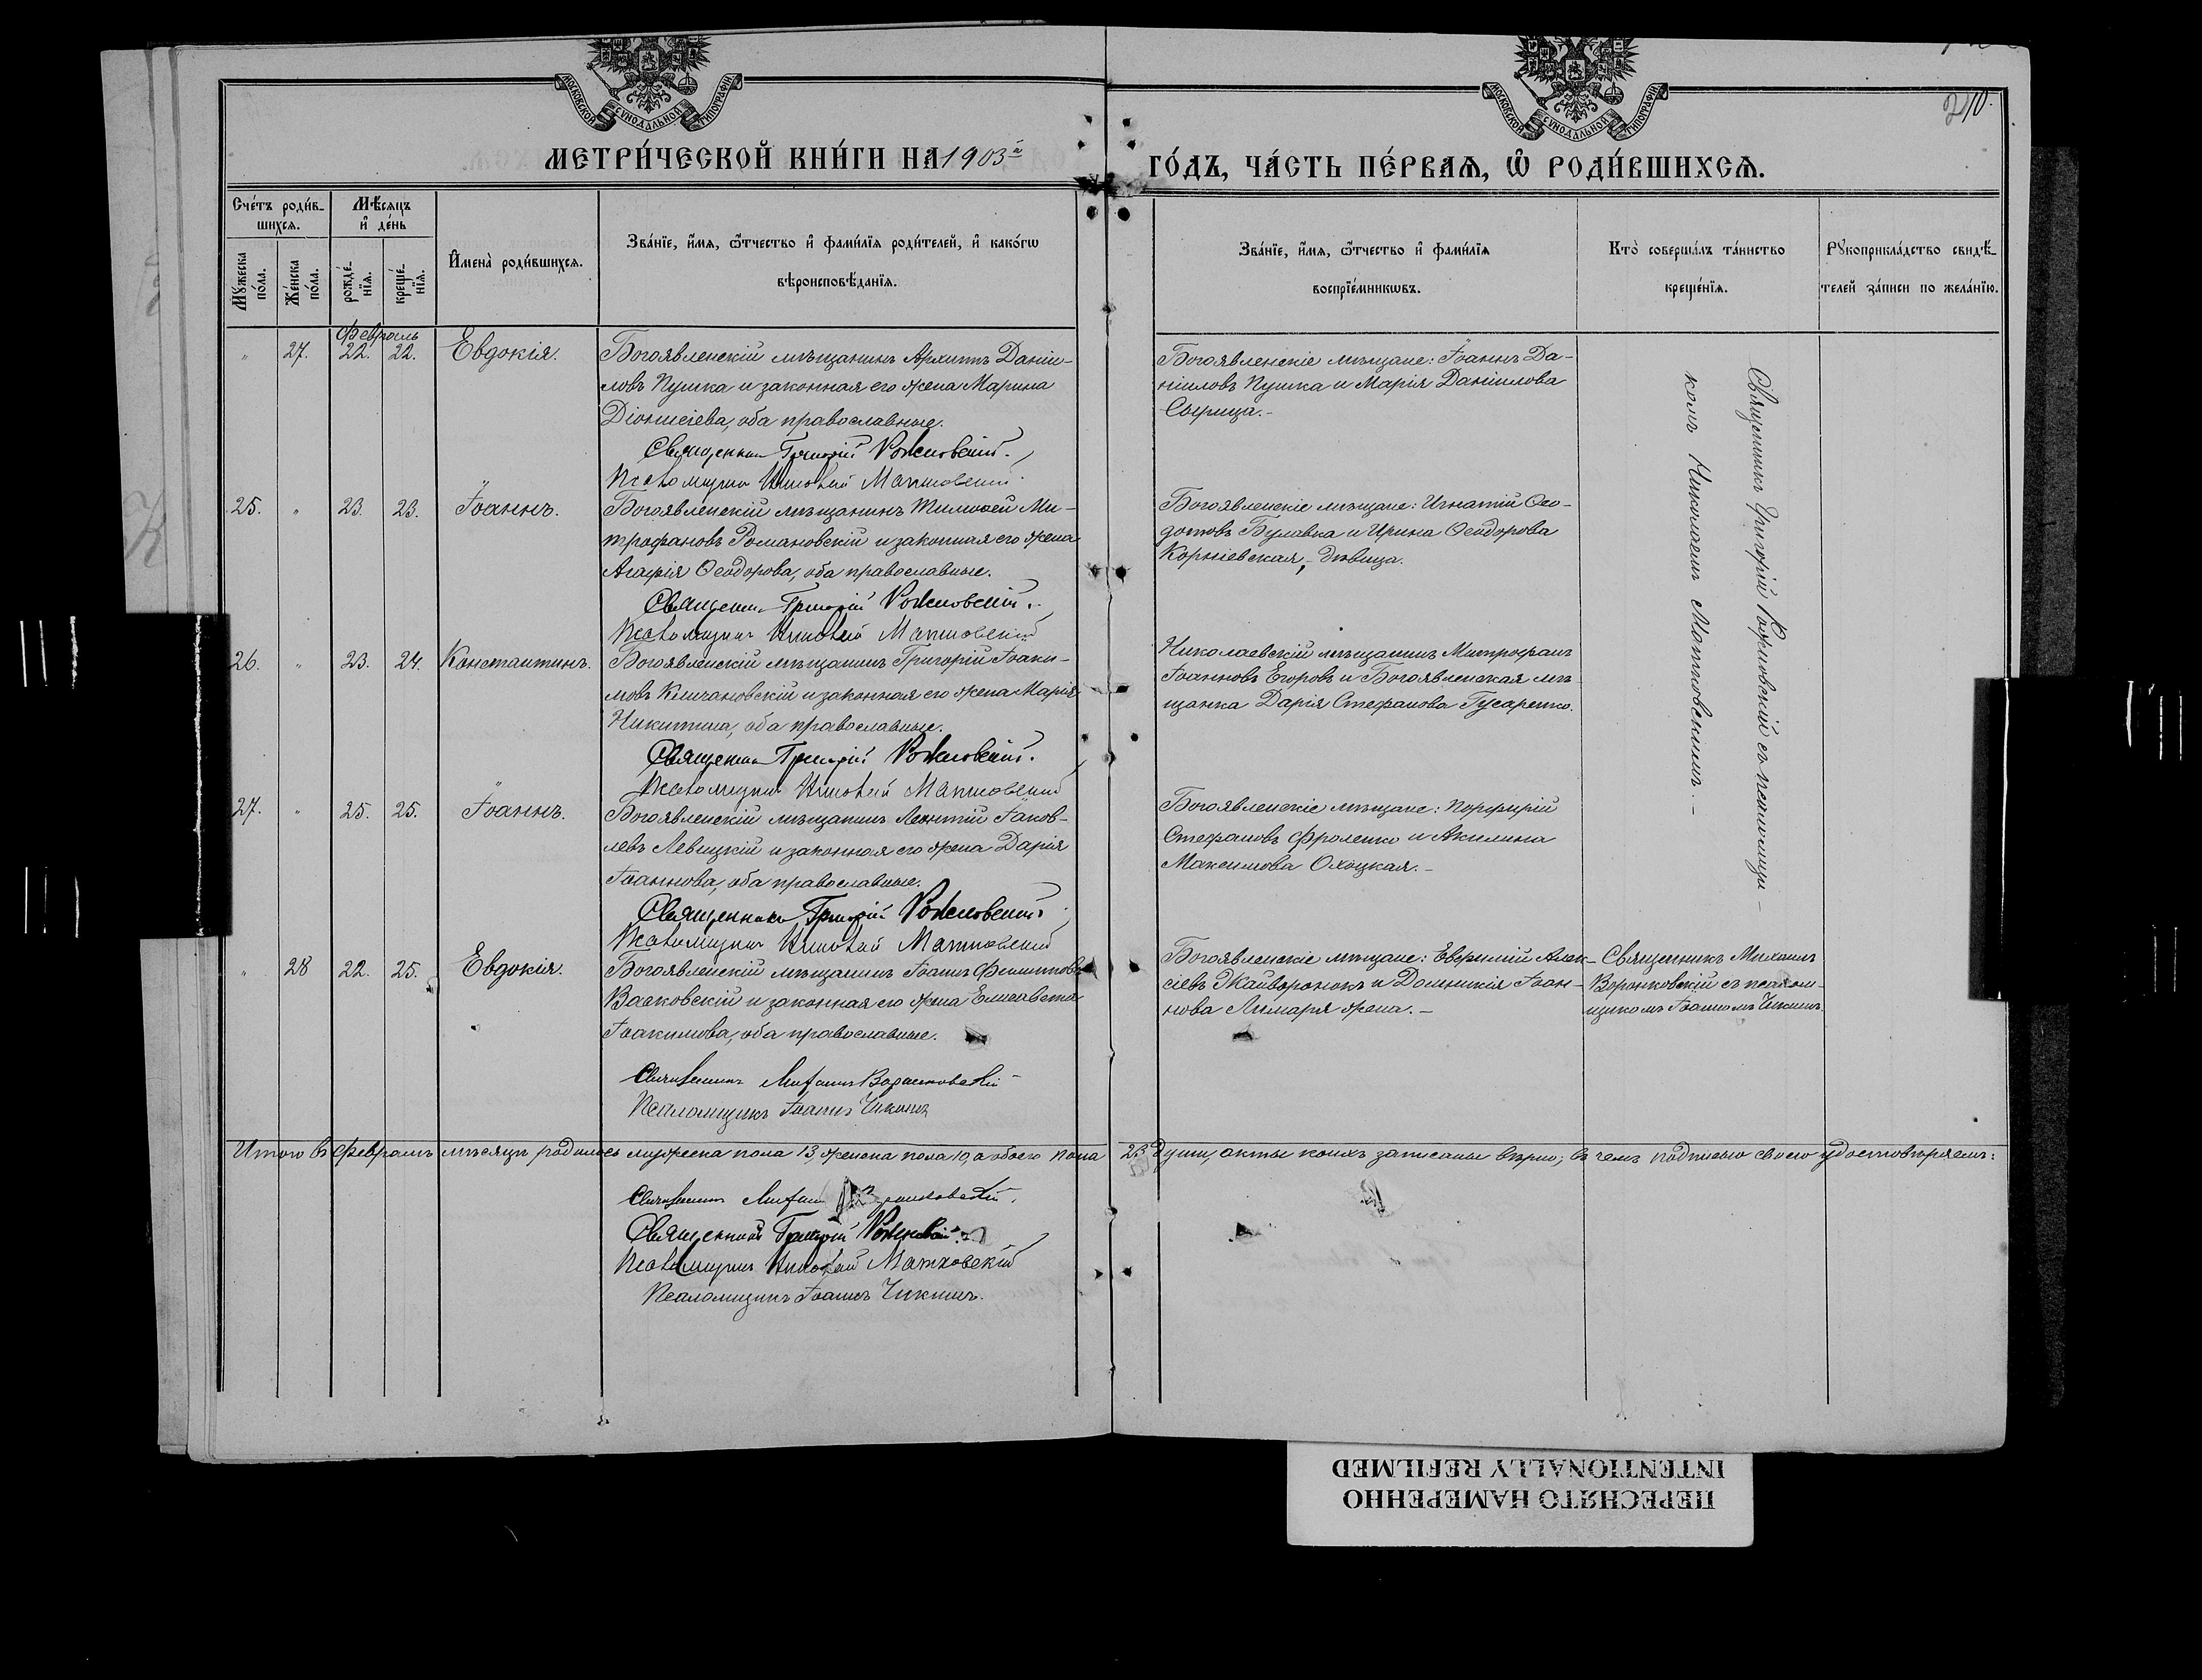 МОСКОВСКОЙ СУНОДАЛЬНОЙ ТИПОГРАФІИ
МОСКОВСКОЙ СУНОДАЛЬНОЙ ТИПОГРАФІИ
210.
МЕТРИ́ЧЕСКОЙ КНИ́ГИ НА 1903й
ГО́ДЪ, ЧА́СТЬ ПЕ́РВАѦ, Ѡ҆ РОДИ́ВШИХСѦ.
Сче́тъ роди́в-
шихсѧ.
Мѣ́сѧцъ
и҆ де́нь
Мꙋ́жеска
по́ла.
Же́нска
по́ла.
рожде́-
нїѧ.
креще́-
нїѧ.
И҆мена̀ роди́вшихсѧ.
Зва́нїе, и҆́мѧ, ѻ҆́тчество и҆ фами́лїѧ роди́телей, и҆ како́гѡ
вѣроисповѣ́данїѧ.
Зва́нїе, и҆́мѧ, ѻ҆́тчество и҆ фами́лїѧ
воспрїе́мникѡвъ.
Кто̀ соверша́лъ та́инство
креще́нїѧ.
Рꙋкоприкла́дство свидѣ́-
телей за́писи по жела́нїю.
Февраль
" 27. 22. 22. Евдокія.
Богоявленскій мѣщанинъ Архипъ Даніи-
ловъ Пушка и законная его жена Марина
Діонисіева, оба православные.
Священникъ Григорій Рожновскій.
Псаломщикъ Николай Матковскій.
Богоявленскіе мѣщане: Іоаннъ Да-
ніиловъ Пушка и Марія Даніилова
Сырица.-
Священникъ Григорій Рожновскій съ псаломщи-
комъ Николаемъ Матковскимъ.-
25. " 23. 23. Іоаннъ.
Богоявленскій мѣщанинъ Тимоѳей Ми-
трофановъ Романовскій и законная его жена
Агафія Ѳеодорова, оба православные.
Священникъ Григорій Рожновскій.
Псаломщикъ Николай Матковскій
Богоявленскіе мѣщане: Игнатій Ѳео-
дотовъ Булавка и Ирина Ѳеодорова
Корніевская,- дѣвица.
26. " 23. 24. Константинъ.
Богоявленскій мѣщанинъ Григорій Іоаки-
мовъ Кличановскій и законная его жена Марія
Никитина, оба православные.
Священникъ Григорій Рожновскій.
Псаломщикъ Николай Матковскій
Николаевскій мѣщанинъ Митрофанъ
Іоанновъ Егоровъ и Богоявленская мѣ-
щанка Дарія Стефанова Гусаренко.
27. " 25. 25. Іоаннъ.
Богоявленскій мѣщанинъ Леонтій Іаков-
левъ Левицкій и законная его жена Дарія
Іоаннова, оба православные.
Священникъ Григорій Рожновскій
Псаломщикъ Николай Матковскій
Богоявленскіе мѣщане: Порфирій
Стефановъ Фроленко и Акилина
Максимова Охоцкая.-
" 28 22. 25. Евдокія.
Богоявленскій мѣщанинъ Іоаннъ Филипповъ
Вааковскій и законная его жена Елисавета
Іоакимова, оба православные.
Священникъ Михаилъ Воронковскій
Псаломщикъ Іоаннъ Чикинъ
Богоявленскіе мѣщане: Евфимій Алек-
сіевъ Жайворонокъ и Домникія Іоан-
нова Лимаря жена.-
Священникъ Михаилъ
Воронковскій съ псалом-
щикомъ Іоанномъ Чикинъ.
Итого въ Февралѣ мѣсяцѣ родилось мужеска пола 13, женска пола 10, а обоего пола 23 души, акты коихъ записаны вѣрно; въ чемъ подписью своею удостовѣряемъ:
Священникъ Михаилъ Воронковскій.
Священникъ Григорій Рожновскій.
Псаломщикъ Николай Матковскій
Псаломщикъ Іоаннъ Чикинъ.
ПЕРЕСНЯТО НАМЕРЕННО
INTENTIONALLY REFILMED